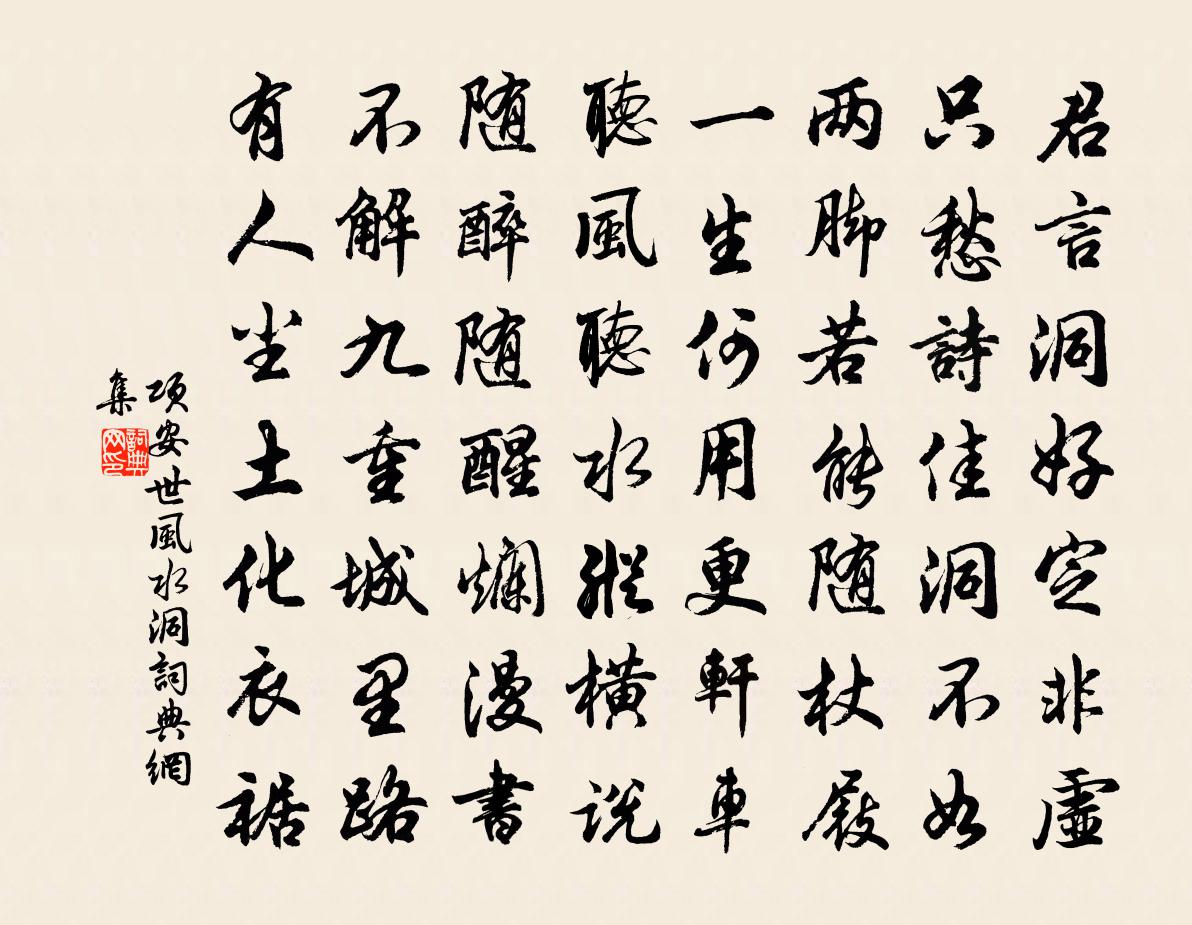 君言洞好定非虛
只愁詩佳洞不如
两脚若能随杖屐
一生何用更軒車
聽風聽水縱橫説
随醉随醒爛漫書
不解九重城里路
有人坐土化衣裾
項安世風水洞詞典網
集
詞典
网印